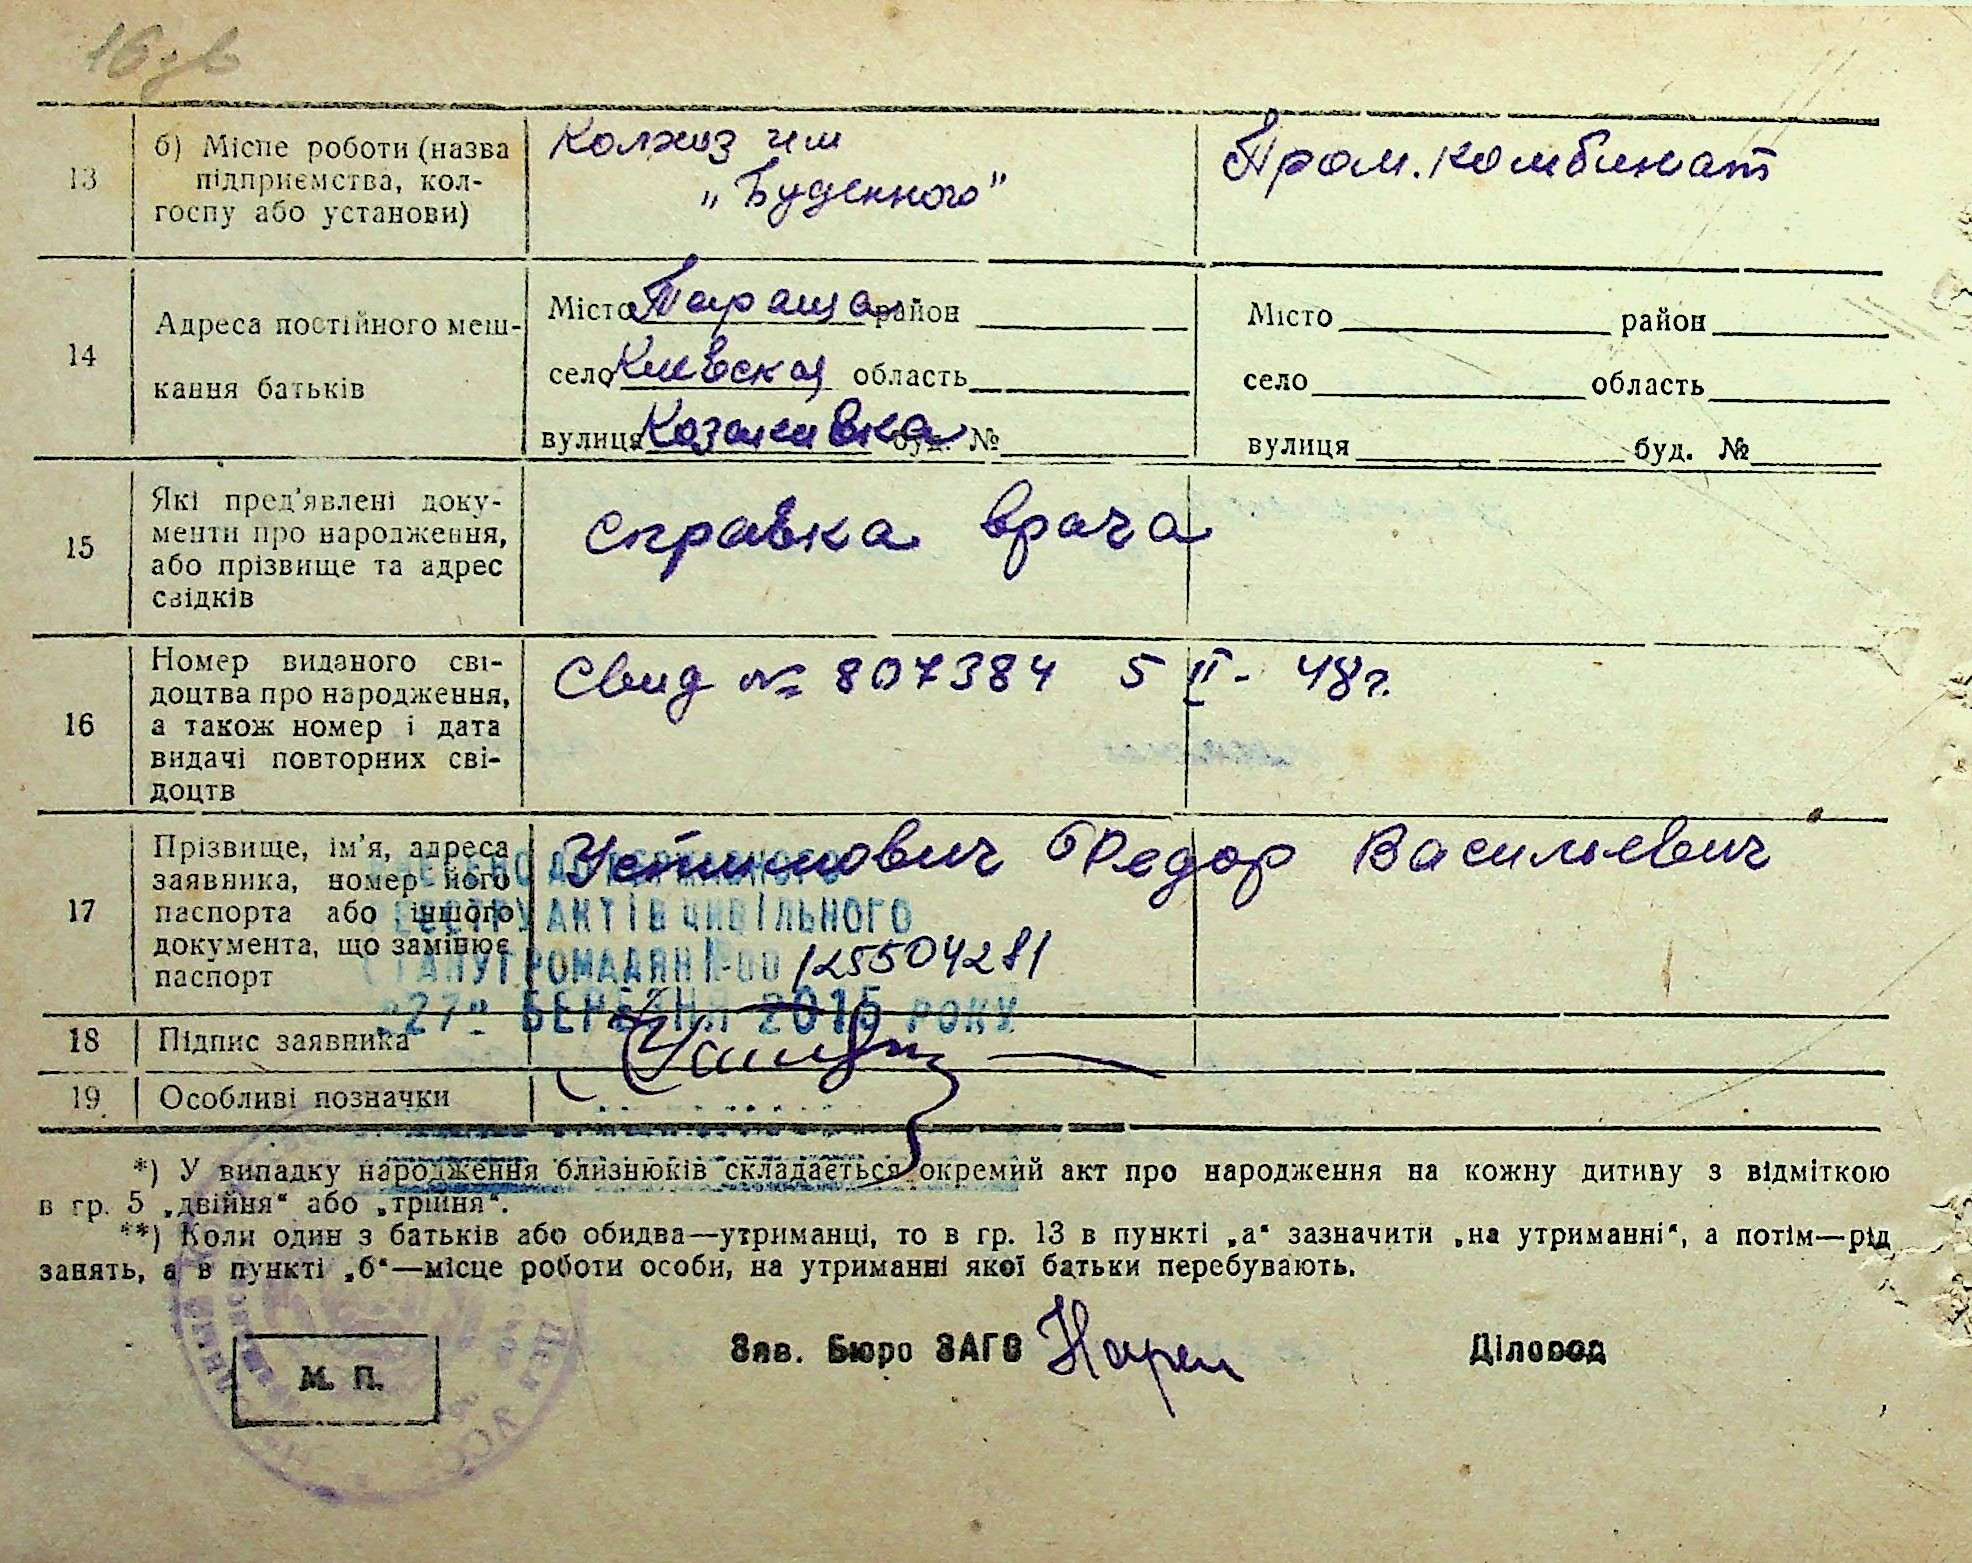 16зв
13
б) Місце роботи (назва
підприємства, кол-
госпу або установи)
Колхоз им
„Буденного"
Пром. комбинат
14
Адреса постійного меш-
кання батьків
Місто Тараща район
село Киевская область
вулиця Козаківка буд. №
Місто район
село область
вулиця буд. №
15
Які пред'явлені доку-
менти про народження,
або прізвище та адрес
свідків
справка врача
16
Номер виданого сві-
доцтва про народження,
а також номер і дата
видачі повторних сві-
доцтв
Свид № 807384 5 II - 48 г.
17
Прізвище, ім'я, адреса
заявника, номер його
паспорта або іншого
документа, що замінює
паспорт
Устимович Федор Васильевич
ДЕРЖАВНОГО
РЕЄСТРУ АКТІВ ЦИВІЛЬНОГО
СТАНУ ГРОМАДЯН 1-00 125504281
"27" БЕРЕЗНЯ 2015 РОКУ
18
Підпис заявника
19
Особливі позначки
*) У випадку народження близнюків складається окремий акт про народження на кожну дитину з відміткою
в гр. 5 „двійня“ або „трійня“.
**) Коли один з батьків або обидва—утриманці, то в гр. 13 в пункті „а“ зазначити „на утриманні“, а потім—рід
занять, а в пункті „б“—місце роботи особи, на утриманні якої батьки перебувають.
Зав. Бюро ЗАГС
Діловод
М. П.